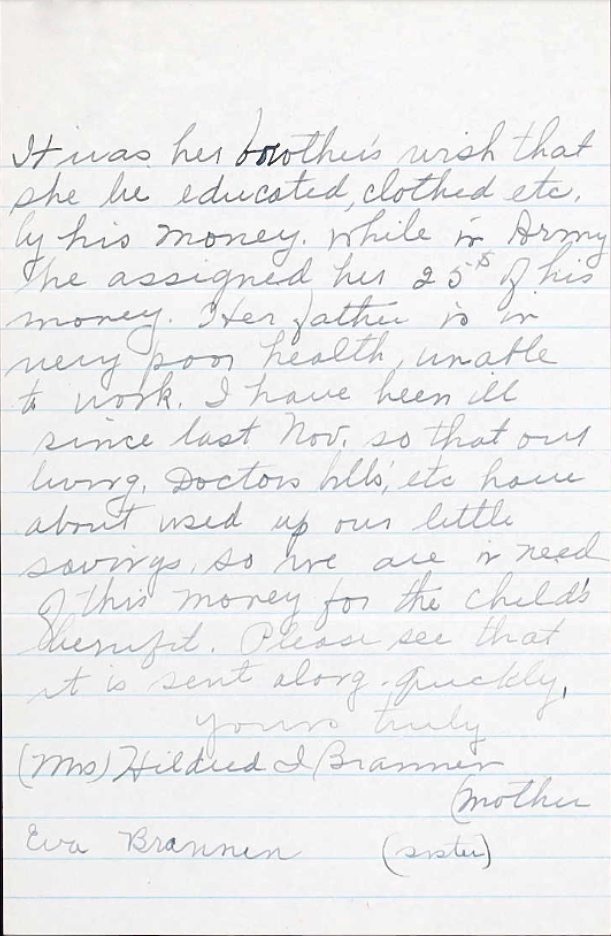 It was her brother's wish that
she be educated, clothed etc.
by his money. While in Army
he assigned her 25$ of his
money. Her father is in
very poor health, unable
to work. I have been ill
since last Nov. so that our
living, Doctors bills, etc have
about used up our little
savings, so we are in need
of this money for the child's
benifit. Please see that
it is sent along quickly,
Yours truly
(Mrs) Hildred I Brannen
(mother
Eva Brannen (sister)